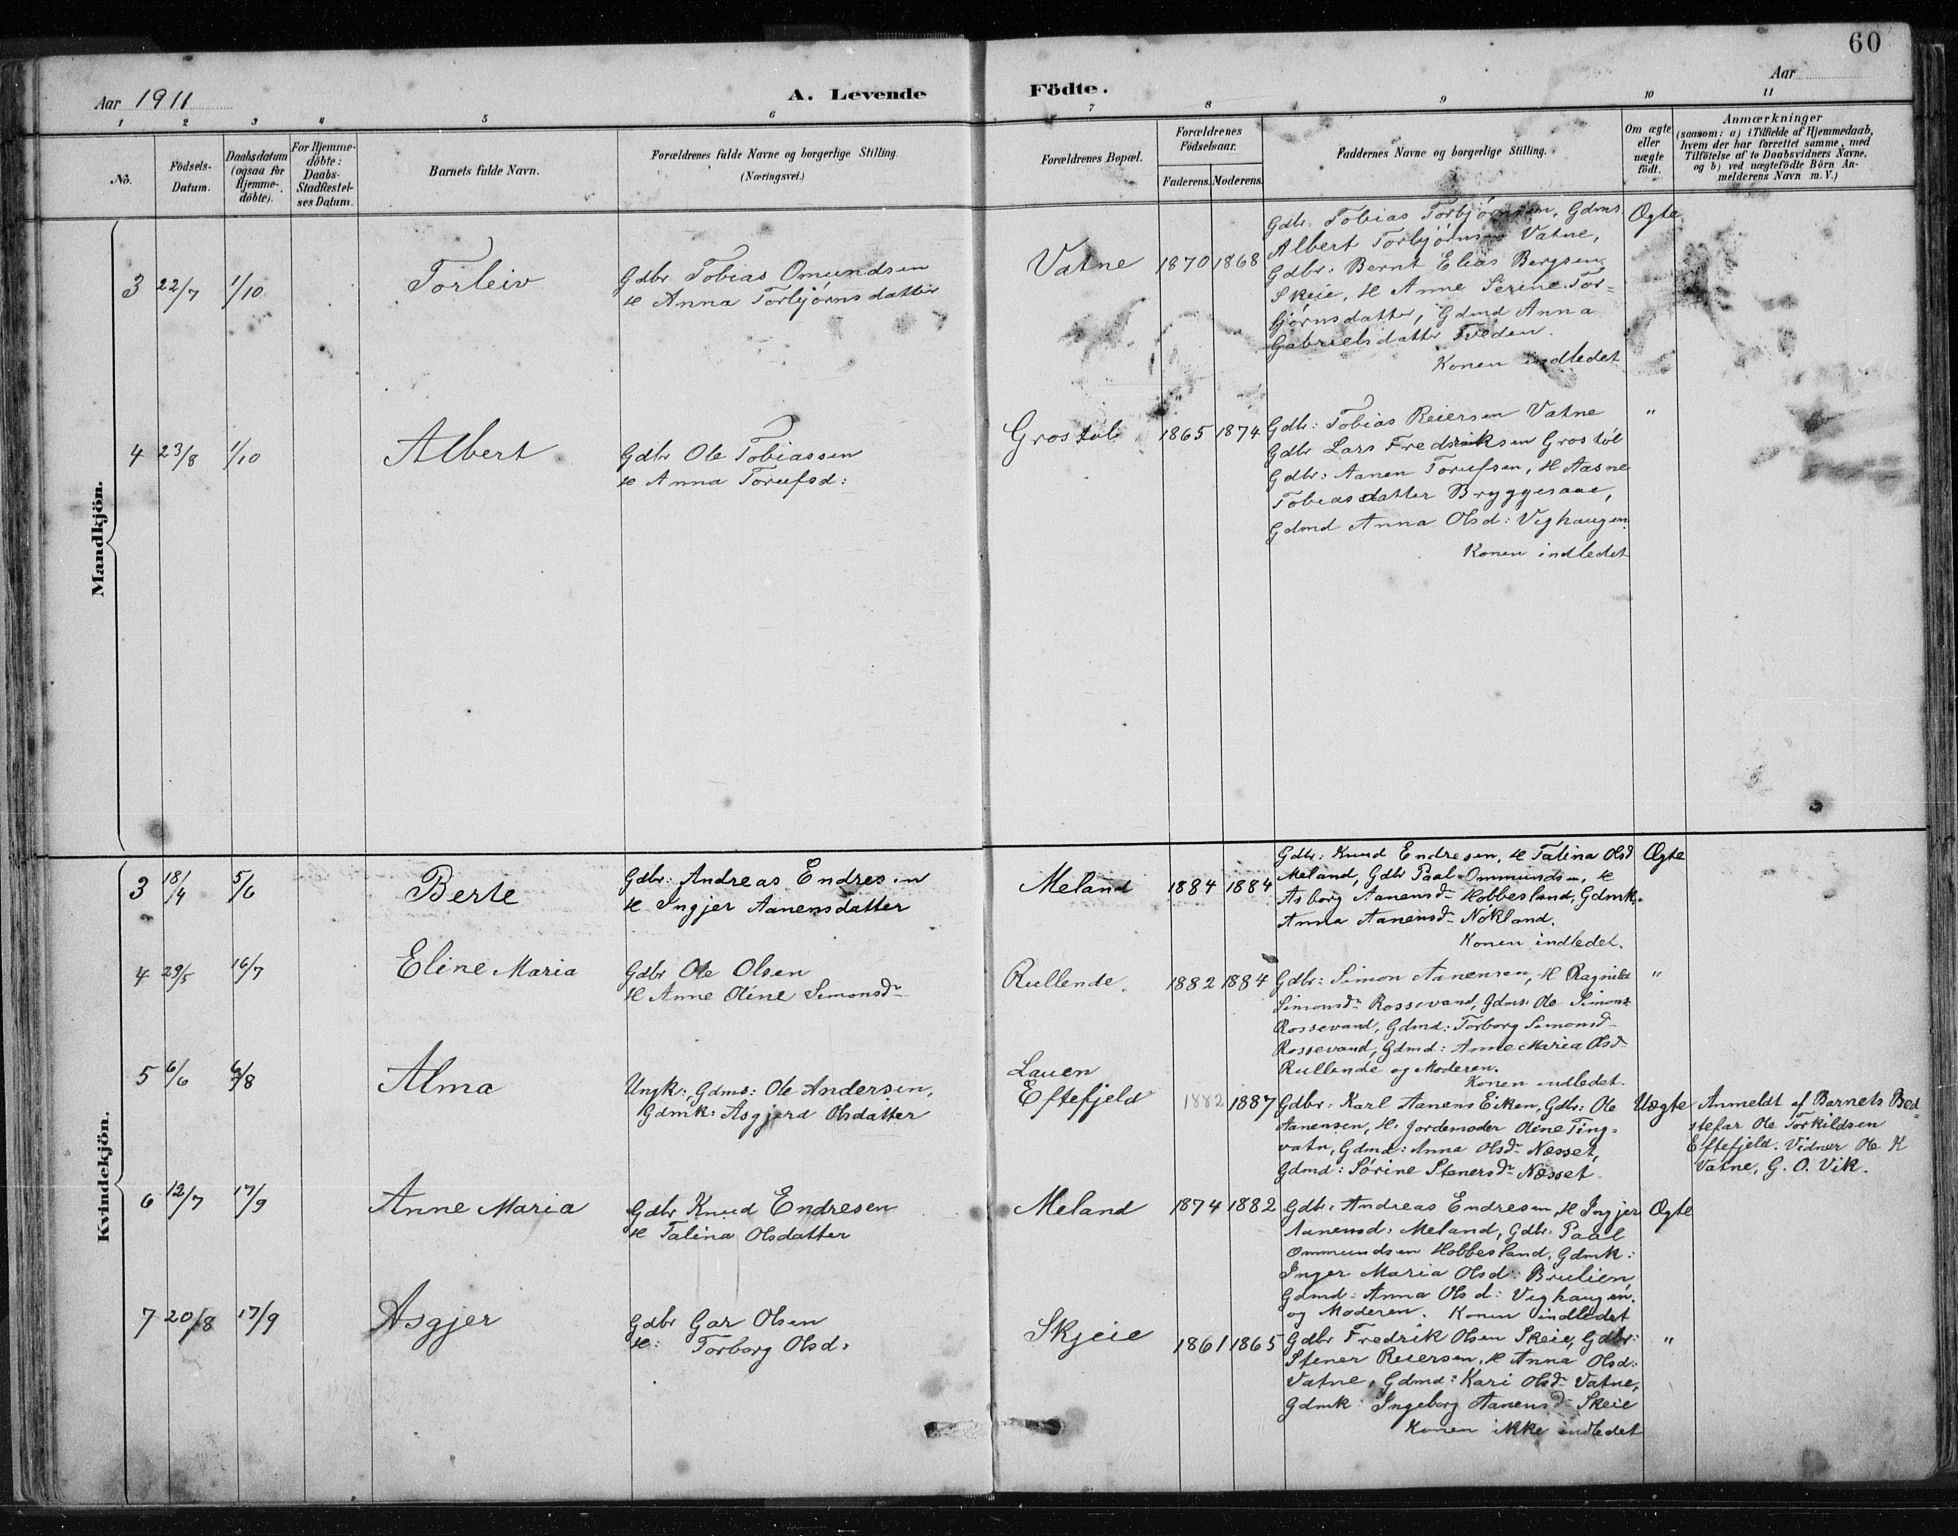 60
Aar 1911
A. Levende Födte.
Aar
1 2 3 4 5 6 7 8 9 10 11
No.
Födsels-
Datum.
Daabsdatum
(ogsaa for
Hjemme-
döbte).
For Hjemme-
döbte:
Daabs-
Stadfæstel-
ses Datum.
Barnets fulde Navn.
Forældrenes fulde Navne og borgerlige Stilling
(Næringsvei.)
Forældrenes Bopæl.
Forældrenes
Födselsaar.
Faderens. Moderens.
Faddernes Navne og borgerlige Stilling.
Om ægte
eller
uægte
födt.
Anmærkninger
(saasom: a) i Tilfælde af Hjemmedaab,
hvem der har forrettet samme, med
Tilföielse af to Daabsvidners Navne,
og b) ved uægtefödte Börn An-
melderens Navn m. V.)
Mandkjön.
3 22/7 1/10 Torleiv
Gdbr Tobias Omundsen
H Anna Torbjørnsdatter
Vatne 1870 1868
Gdbr. Tobias Torbjørnsen, Gdms.
Albert Torbjørnsen Vatne,
Gdbr: Bernt Elias Bergsen
Skeie, H Anne Serine Tor=
bjørnsdatter, Gdmd Anna
Gabrielsdatter Tveden.
Konen indledet
Ægte
4 23/8 1/10 Albert
Gdbr Ole Tobiassen
H Anna Torufsd:
Grostøl 1865 1874
Gdbr: Tobias Reiersen Vatne
Gdbr Lars Fredriksen Grostøl
Gdbr: Aanen Torufsen, H Aasne
Tobiasdatter Bryggesaae,
Gdmd Anna Olsd: Veghaugen
Konen indledet
"
Kvindekjön.
3 18/4 5/6 Berte
Gdbr: Andreas Endresen
H Ingjer Aanensdatter
Meland 1884 1884
Gdbr: Knud Endresen, H Talina Olsd
Meland, Gdbr Paal Ommundsen, H
Asborg Aanensd- Hobbesland, Gdmk.
Anna Aanensd- Nökland.
Konen indledet.
Ægte
4 29/5 16/7 Eline Maria
Gdbr Ole Olsen
H Anne Oline Simonsd-
Rullende. 1882 1884
Gdbr: Simon Aanensen, H Ragnild
Simonsd- Rossevand, Gdms: Ole Simons
Rossevand, Gdmd: Torborg Simonsd-
Rossevand, Gdmd: Anne Maria Olsd-
Rullende og Moderen.
Konen indledet.
"
5 6/6 6/8 Alma
Ungk: Gdms: Ole Andersen,
Gdmk: Asgjerd Olsdatter
Lauen
Eftefjeld 1882 1887
Gdbr: Karl Aanens Eiken, Gdbr: Ole
Aanensen, H: Jordemoder Oline Ting=
vatn, Gdmd: Anna Olsd- Næsset,
Gdmd: Sørine Stenersd- Næsset.
Uægte
Anmeldt af Barnets Bed=
stefar Ole Torkildsen
Eftefjeld. Vidner Ole K
Vatne, G. O. Vik.
6 12/7 17/9 Anne Maria
Gdbr Knud Endresen
H Talina Olsdatter
Meland 1874 1882
Gdbr. Andreas Endresen, H Ingjer
Aanensd: Meland, Gdbr: Paal
Ommundsen Hobbesland, Gdmk:
Inger Maria Olsd: Brulien,
Gdmd: Anna Olsd: Veghaugen.
og Moderen. Konen indledet
Ægte
7 20/8 17/9 Asgjer
Gdbr Gar Olsen
H: Torborg Olsd.
Skjeie 1861 1865
Gdbr Fredrik Olsen Skeie, Gdbr:
Stener Reiersen, H Anna Olsd:
Vatne, Gdmd: Kari Olsd- Vatne,
Gdmk: Ingeborg Aanensd- Skeie
Konen ikke indledet
"